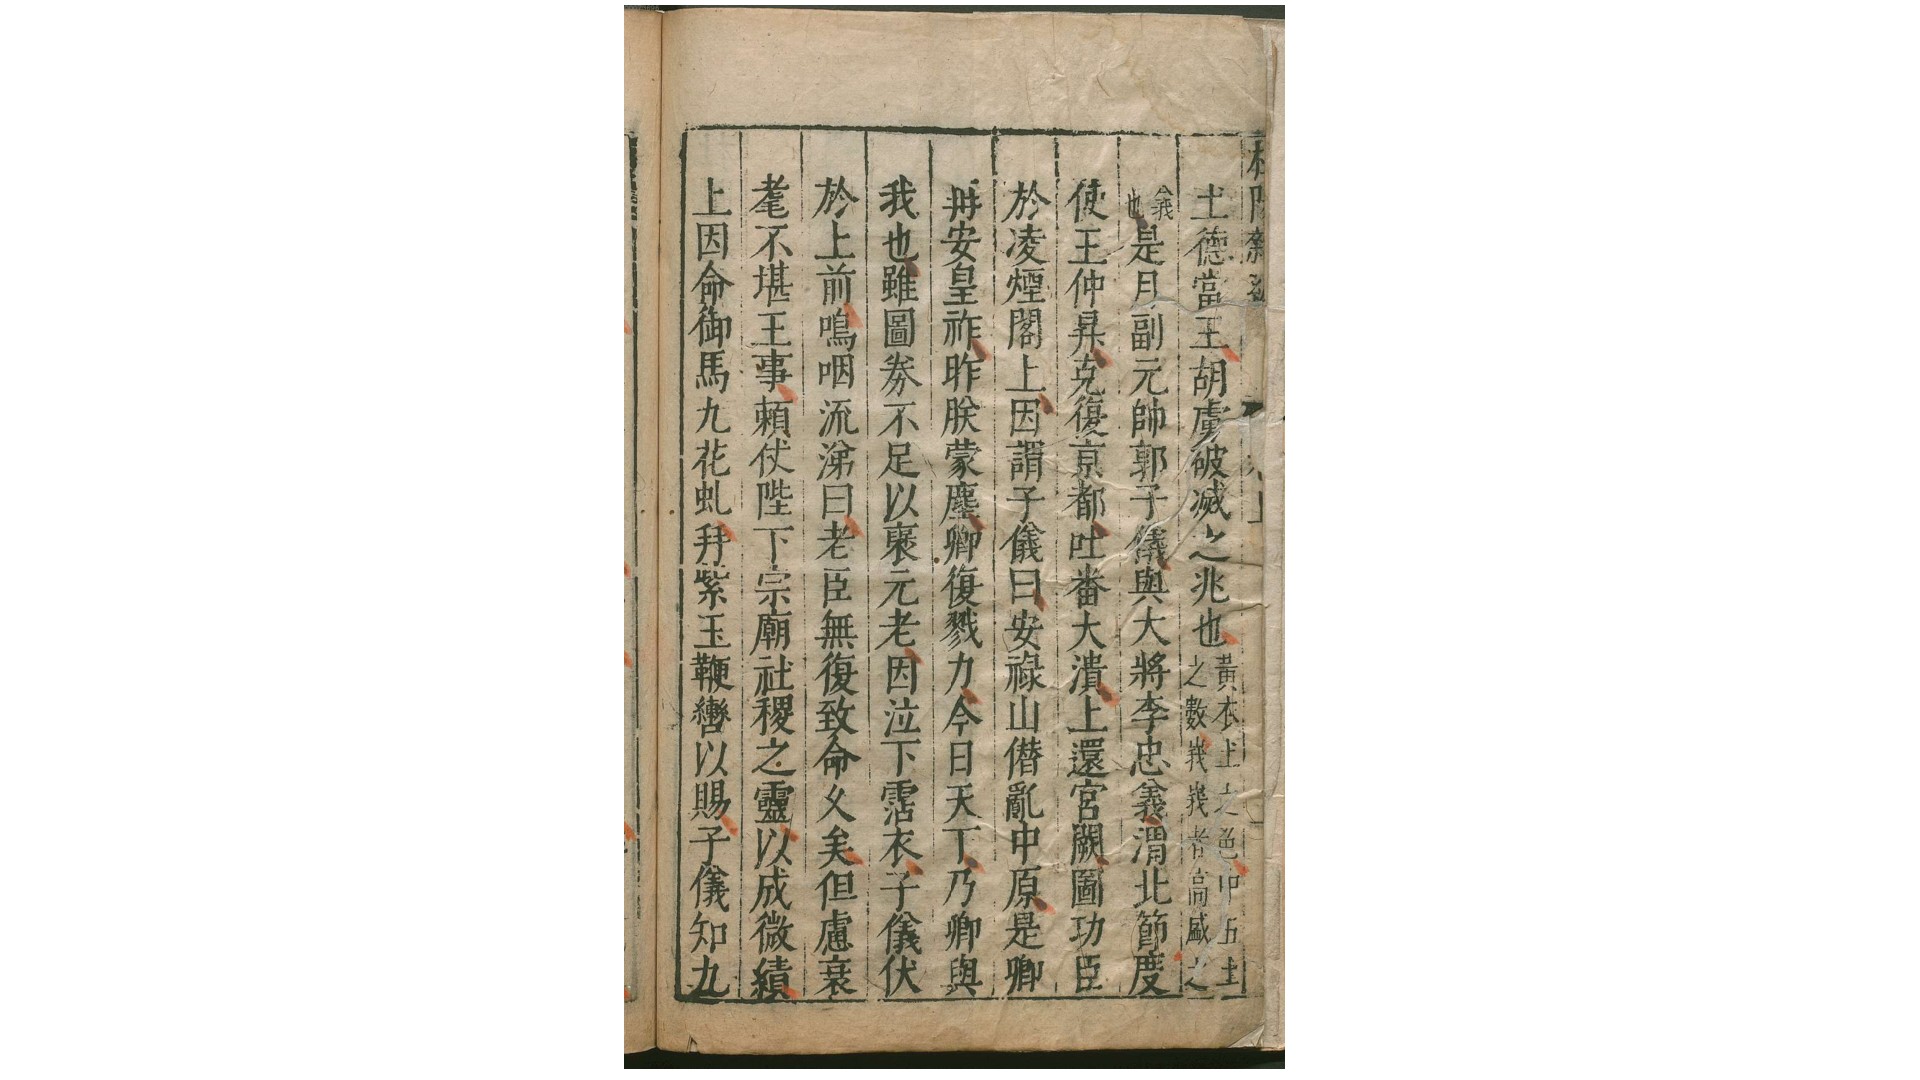 土德當王胡虜破滅之兆也黃衣土之色中五土之數峩峩者高盛之
義也是月副元帥郭子儀與大將李忠義渭北節度
使王仲昇克復京都吐番大潰上還宮闕圖功臣
於凌煙閣上因謂子儀曰安祿山僣亂中原是卿
再安皇祚昨朕蒙塵卿復戮力今日天下乃卿與
我也雖圖券不足以襃元老因泣下霑衣子儀伏
於上前嗚咽流涕曰老臣無復致命久矣但慮衰
耄不堪王事賴仗陛下宗廟社稷之靈以成微績
上因命御馬九花虬并紫玉鞭轡以賜子儀知九